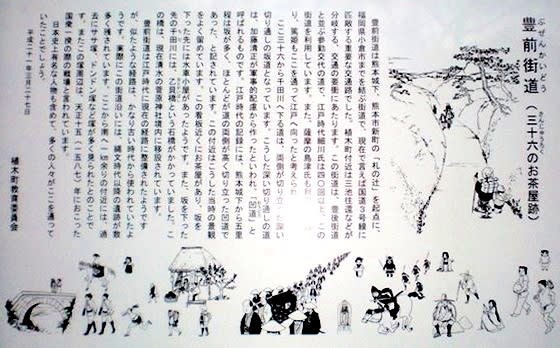 ぶぜんかいどう
豊前街道
さんじゅうろく　ちゃやあと
（三十六のお茶屋跡）
豊前街道は熊本城下、熊本市新町の「札の辻」を起点に、
福岡県小倉市までを結ぶ街道で、現在で言えば国道３号線に
匹敵する重要な交通路でした。植木町付近は三池往還などが
分岐する、交通の要衝にあたります。この街道は、豊後街道
と並ぶ参勤交代の道で、江戸時代細川氏は四〇回以上、この
街道を利用しています。また、薩摩の島津氏も
り、篤姫もここを通って江戸へ向かったと考えら
ここ三十六から田川へ下る道は、両側が切り立った深い
切り通しの坂道となっています。こうした深い切り通しの道
は、加藤清正が軍事的配慮から作ったといわれ、「凹道」と
呼ばれるものです。江戸時代の記録には、熊本城下から五里
程は坂が多く、ほとんどが道の両側が高く切り立った凹道で
あった、と記されています。この付近はこうした当時の景観
をよく留めています。この看板近くにお茶屋があり、坂を
下った先には水車小屋があったようです。また、坂を下った
先の千田川には、豊貝橋という石橋がかかっていました。こ
の橋は、現在清水の菅原神社境内に移設されています。
豊前街道は江戸時代に現在の経路に整備されたようです
が、似たような経路は、かなり古い時代から使われていたよ
うです。実際にこの街道沿いには、縄文時代以降の遺跡が数
多く残されています。ここから南へ一km余りの付近には、過
去にササ塚、ドンドン塚など塚が多く見られたとのことで
す。またこの塚周辺は、天正十五（一五八七）年におこった
国衆一揆の際の戦場と言われています。
日本史上有名な人物も含めて、多くの人々がここを通って
いたことでしょう。
平成二十一年三月二十七日
植木町教育委員会